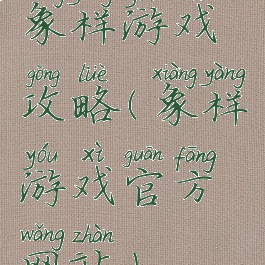 象样游戏
gōng lüè xiàng yàng
攻略(象样
yóu xì guān fāng
游戏官方
wǎng zhàn
网站)